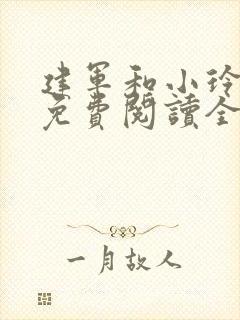 建军和小玲
免費閱讀全
一月故人